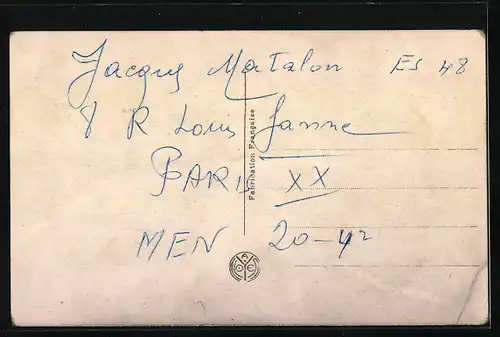 Jacques Matalon ES 48
8 R Louis Ganne
PARIS XX
MEN 20-42
Fabrication Française